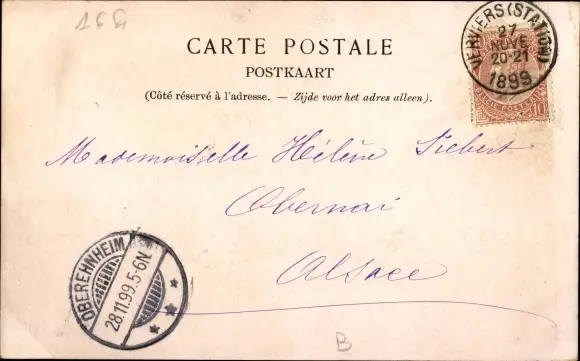 166
VERVIERS (STATION)
27
NOVE
20-21
1899
10
CARTE POSTALE
POSTKAART
(Côté réservé à l'adresse. — Zijde voor het adres alleen).
Mademoiselle Hélène Siebert
Obernai
Alsace
OBEREHNHEIM
28.11.99.5-6N.
B